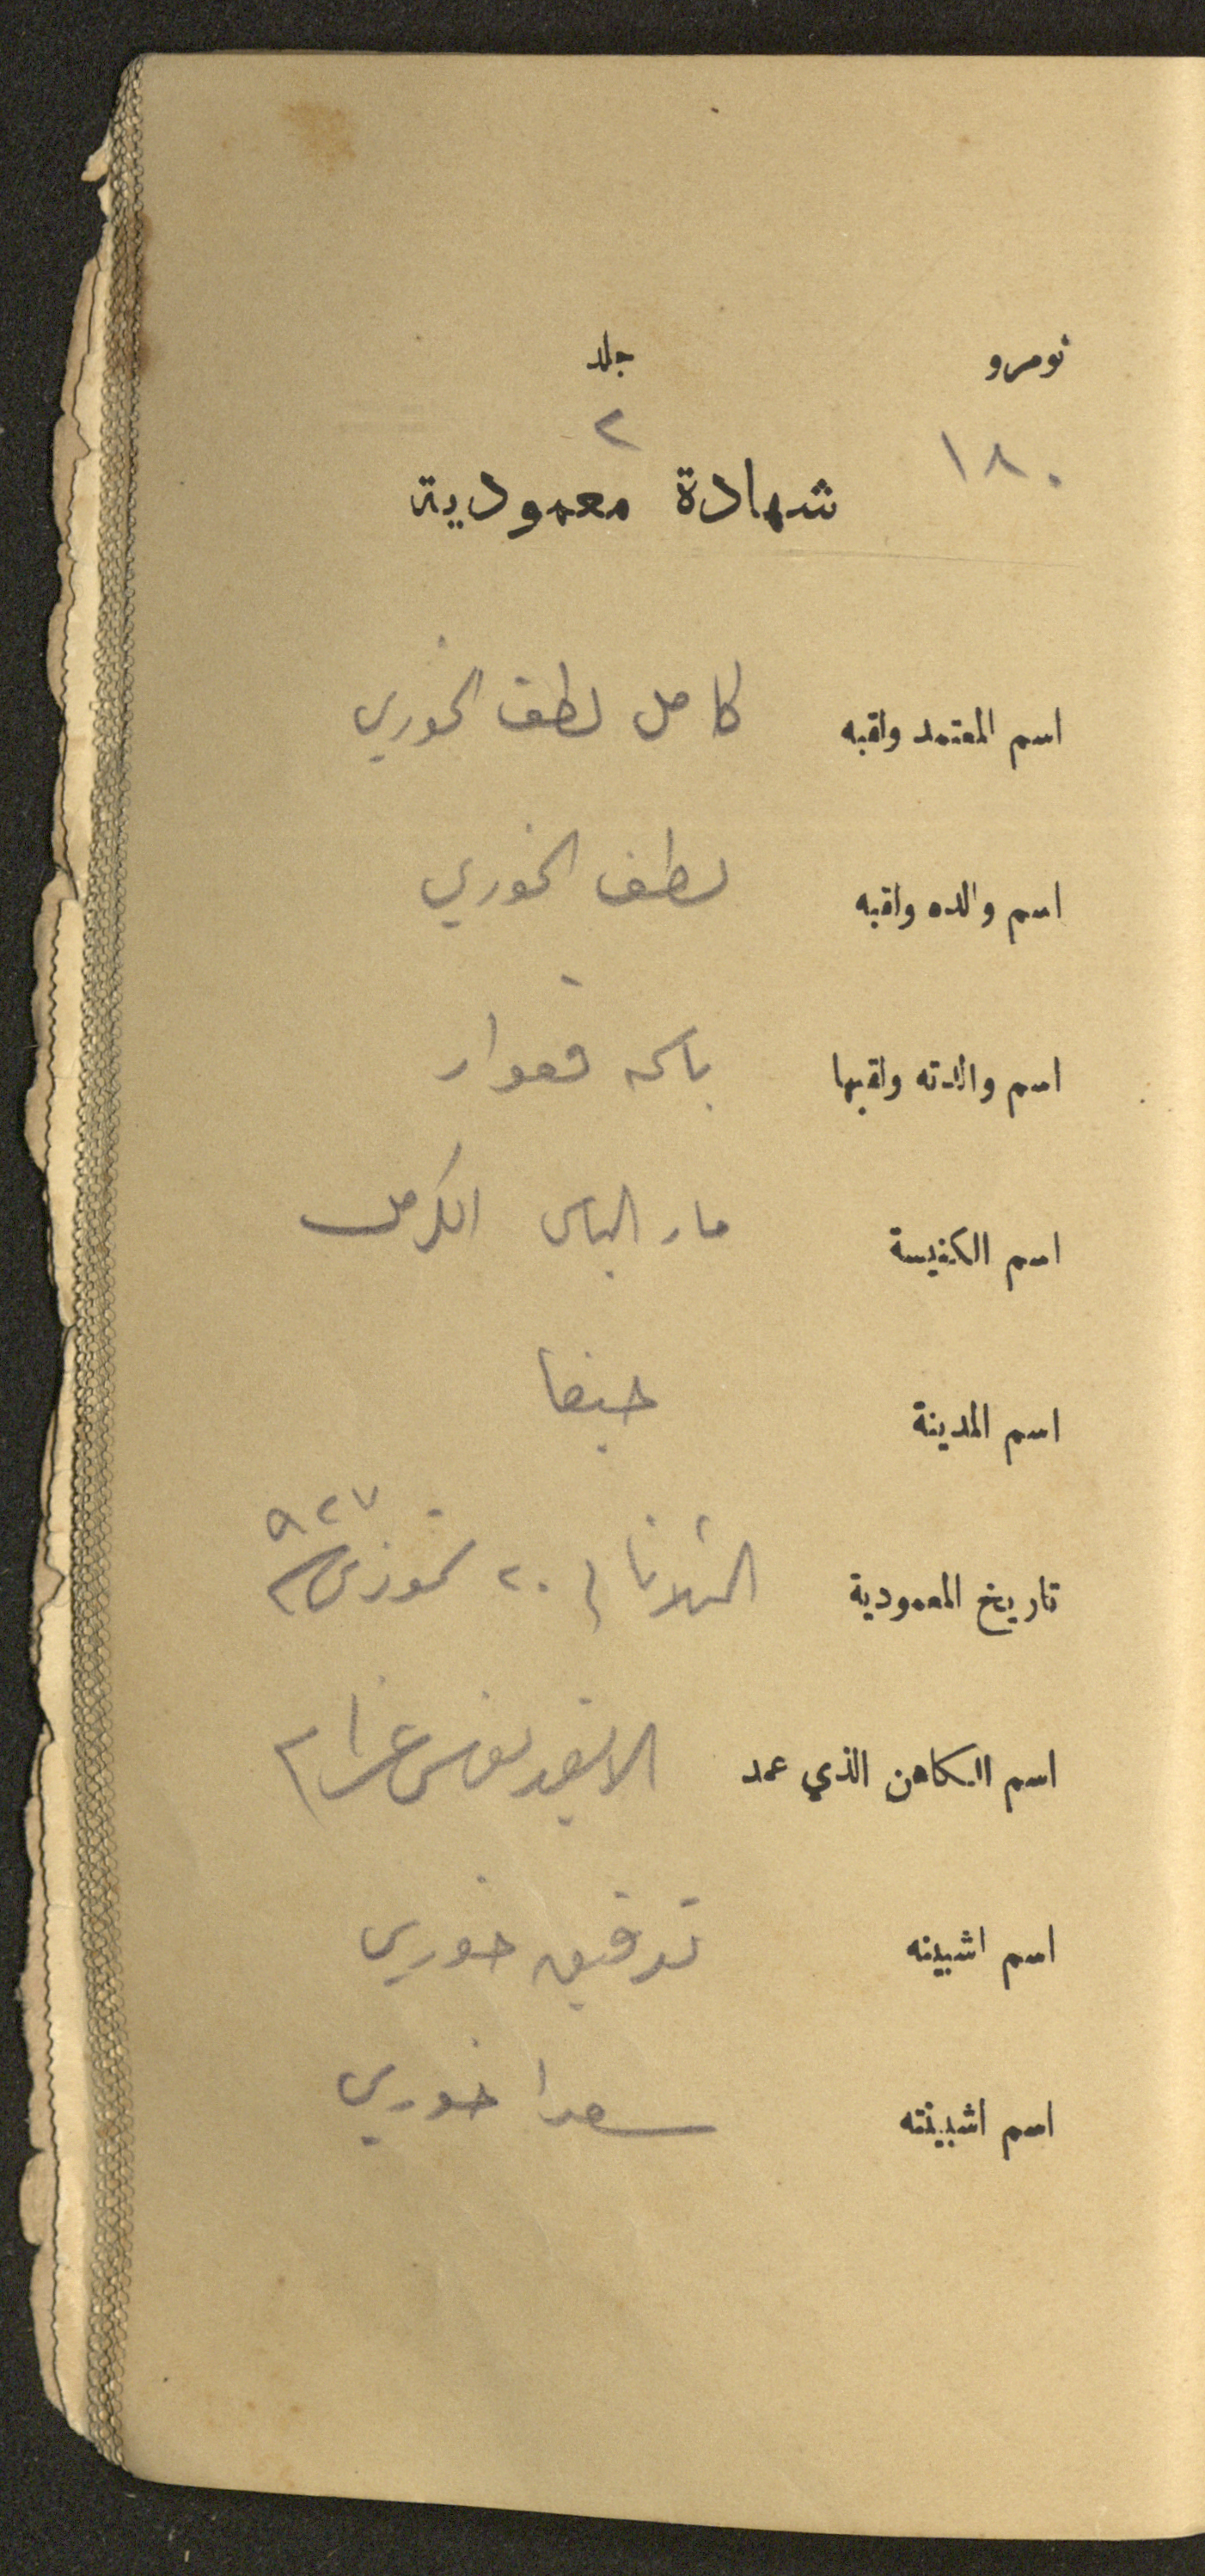 نومرو جلد
١٨٠ ٢
شهادة معمودية
اسم المعتمد ولقبه كامل لطف الخوري
اسم والده ولقبه لطف الخوري
اسم والدته ولقبها قعوار
اسم الكنيسة مار الياس الكرمل
اسم المدينة حيفا
تاريخ المعمودية الثلاثا ٢٠ تموز ٩٢٧
اسم الكاهن الذي عمد
اسم اشبينه توفيق خوري
اسم اشبينته سعدا خوري